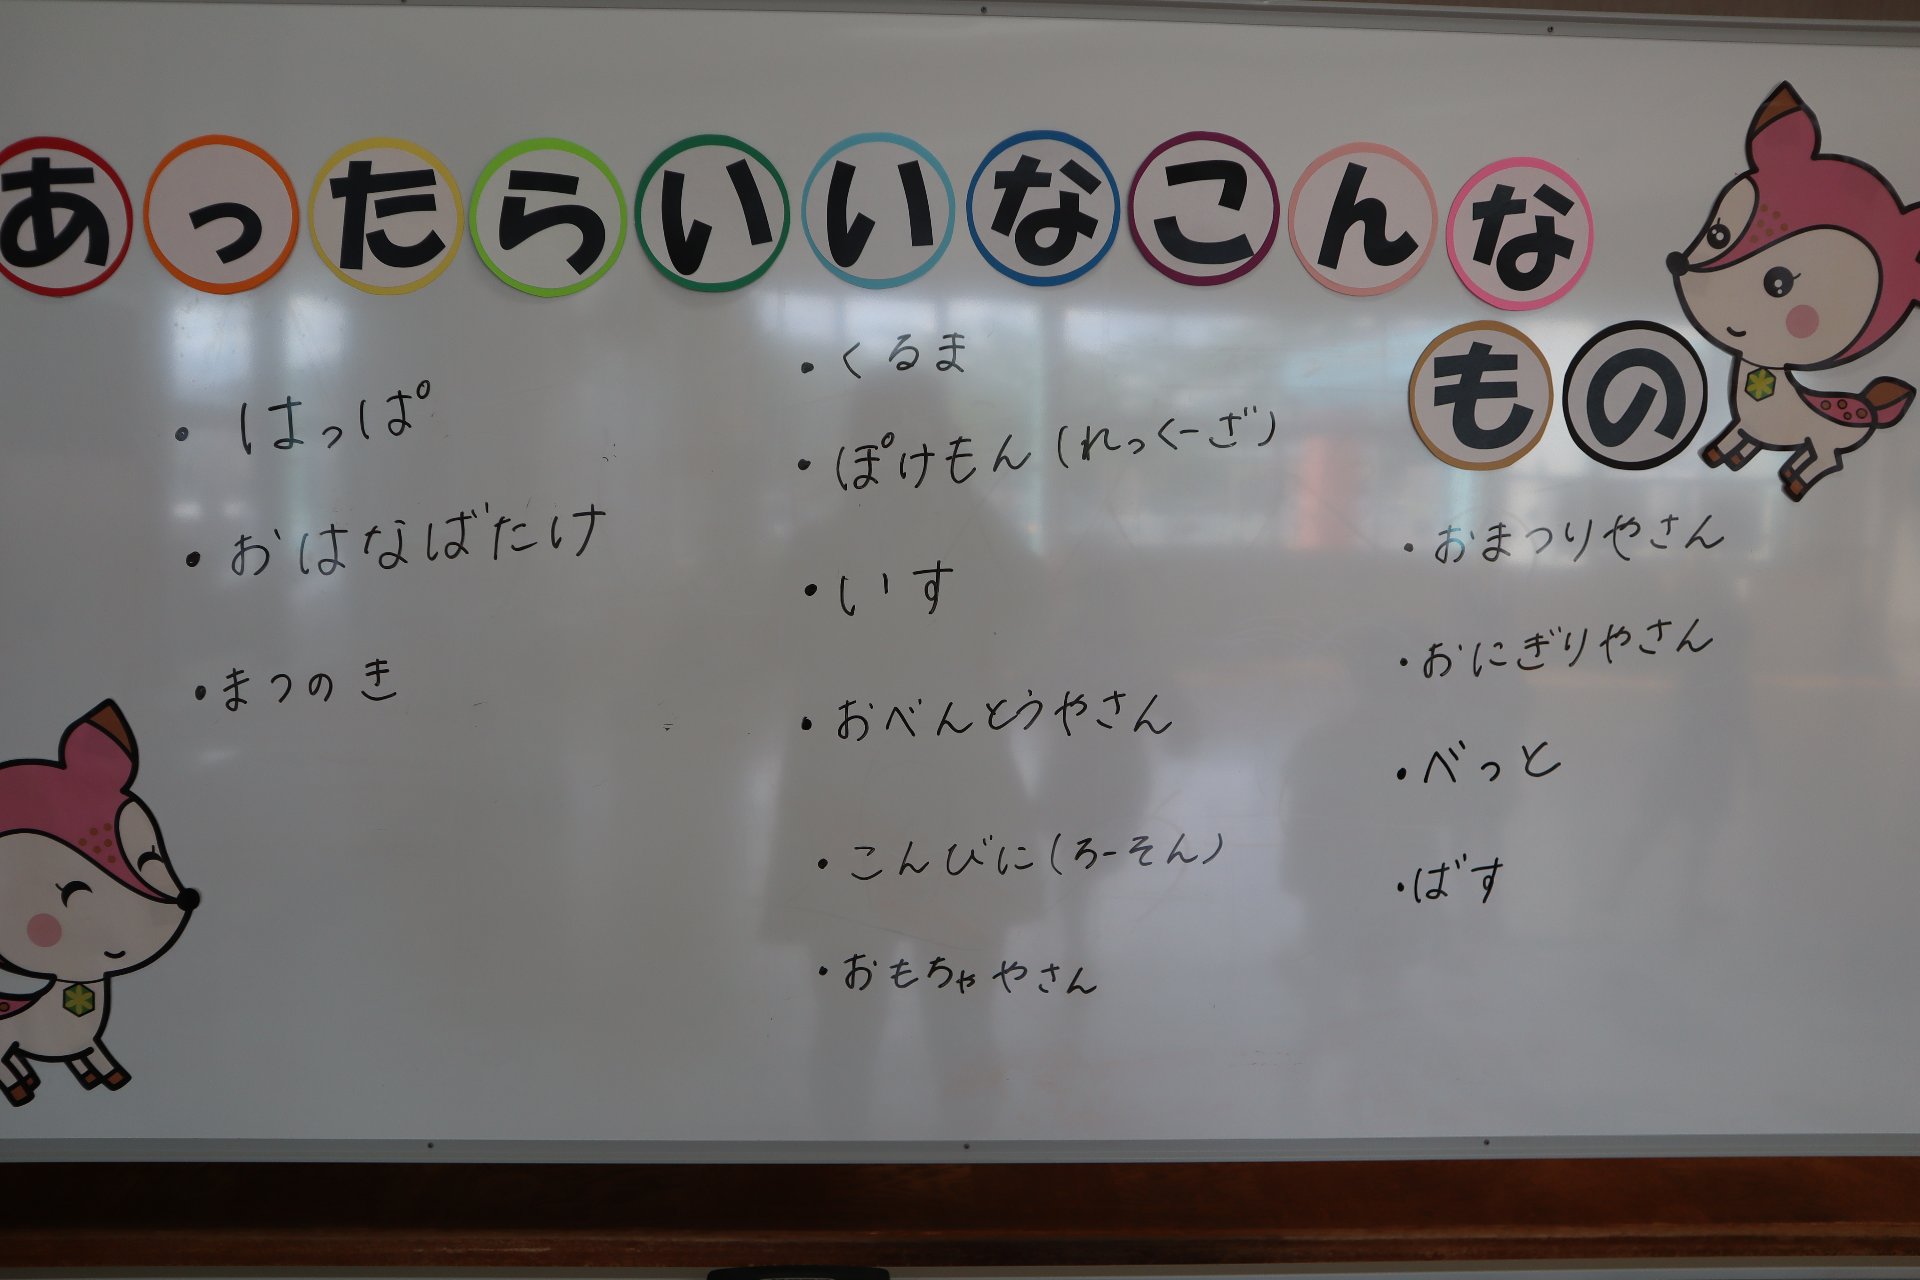 あったらいいなこんな
もの
・はっぱ
・おはなばたけ
・まつのき
・くるま
・ぽけもん(れっくーざ)
・いす
・おべんとうやさん
・こんびに(ろーそん)
・おもちゃやさん
・おまつりやさん
・おにぎりやさん
・べっと
・ばす